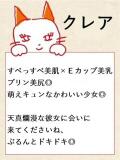 クレア
すべっすべ美肌×Eカップ美乳
プリン美尻◎
萌えキュンなかわいい少女◎
天真爛漫な彼女に会いに
来てくださいね、
ぷるんとドキドキ◎